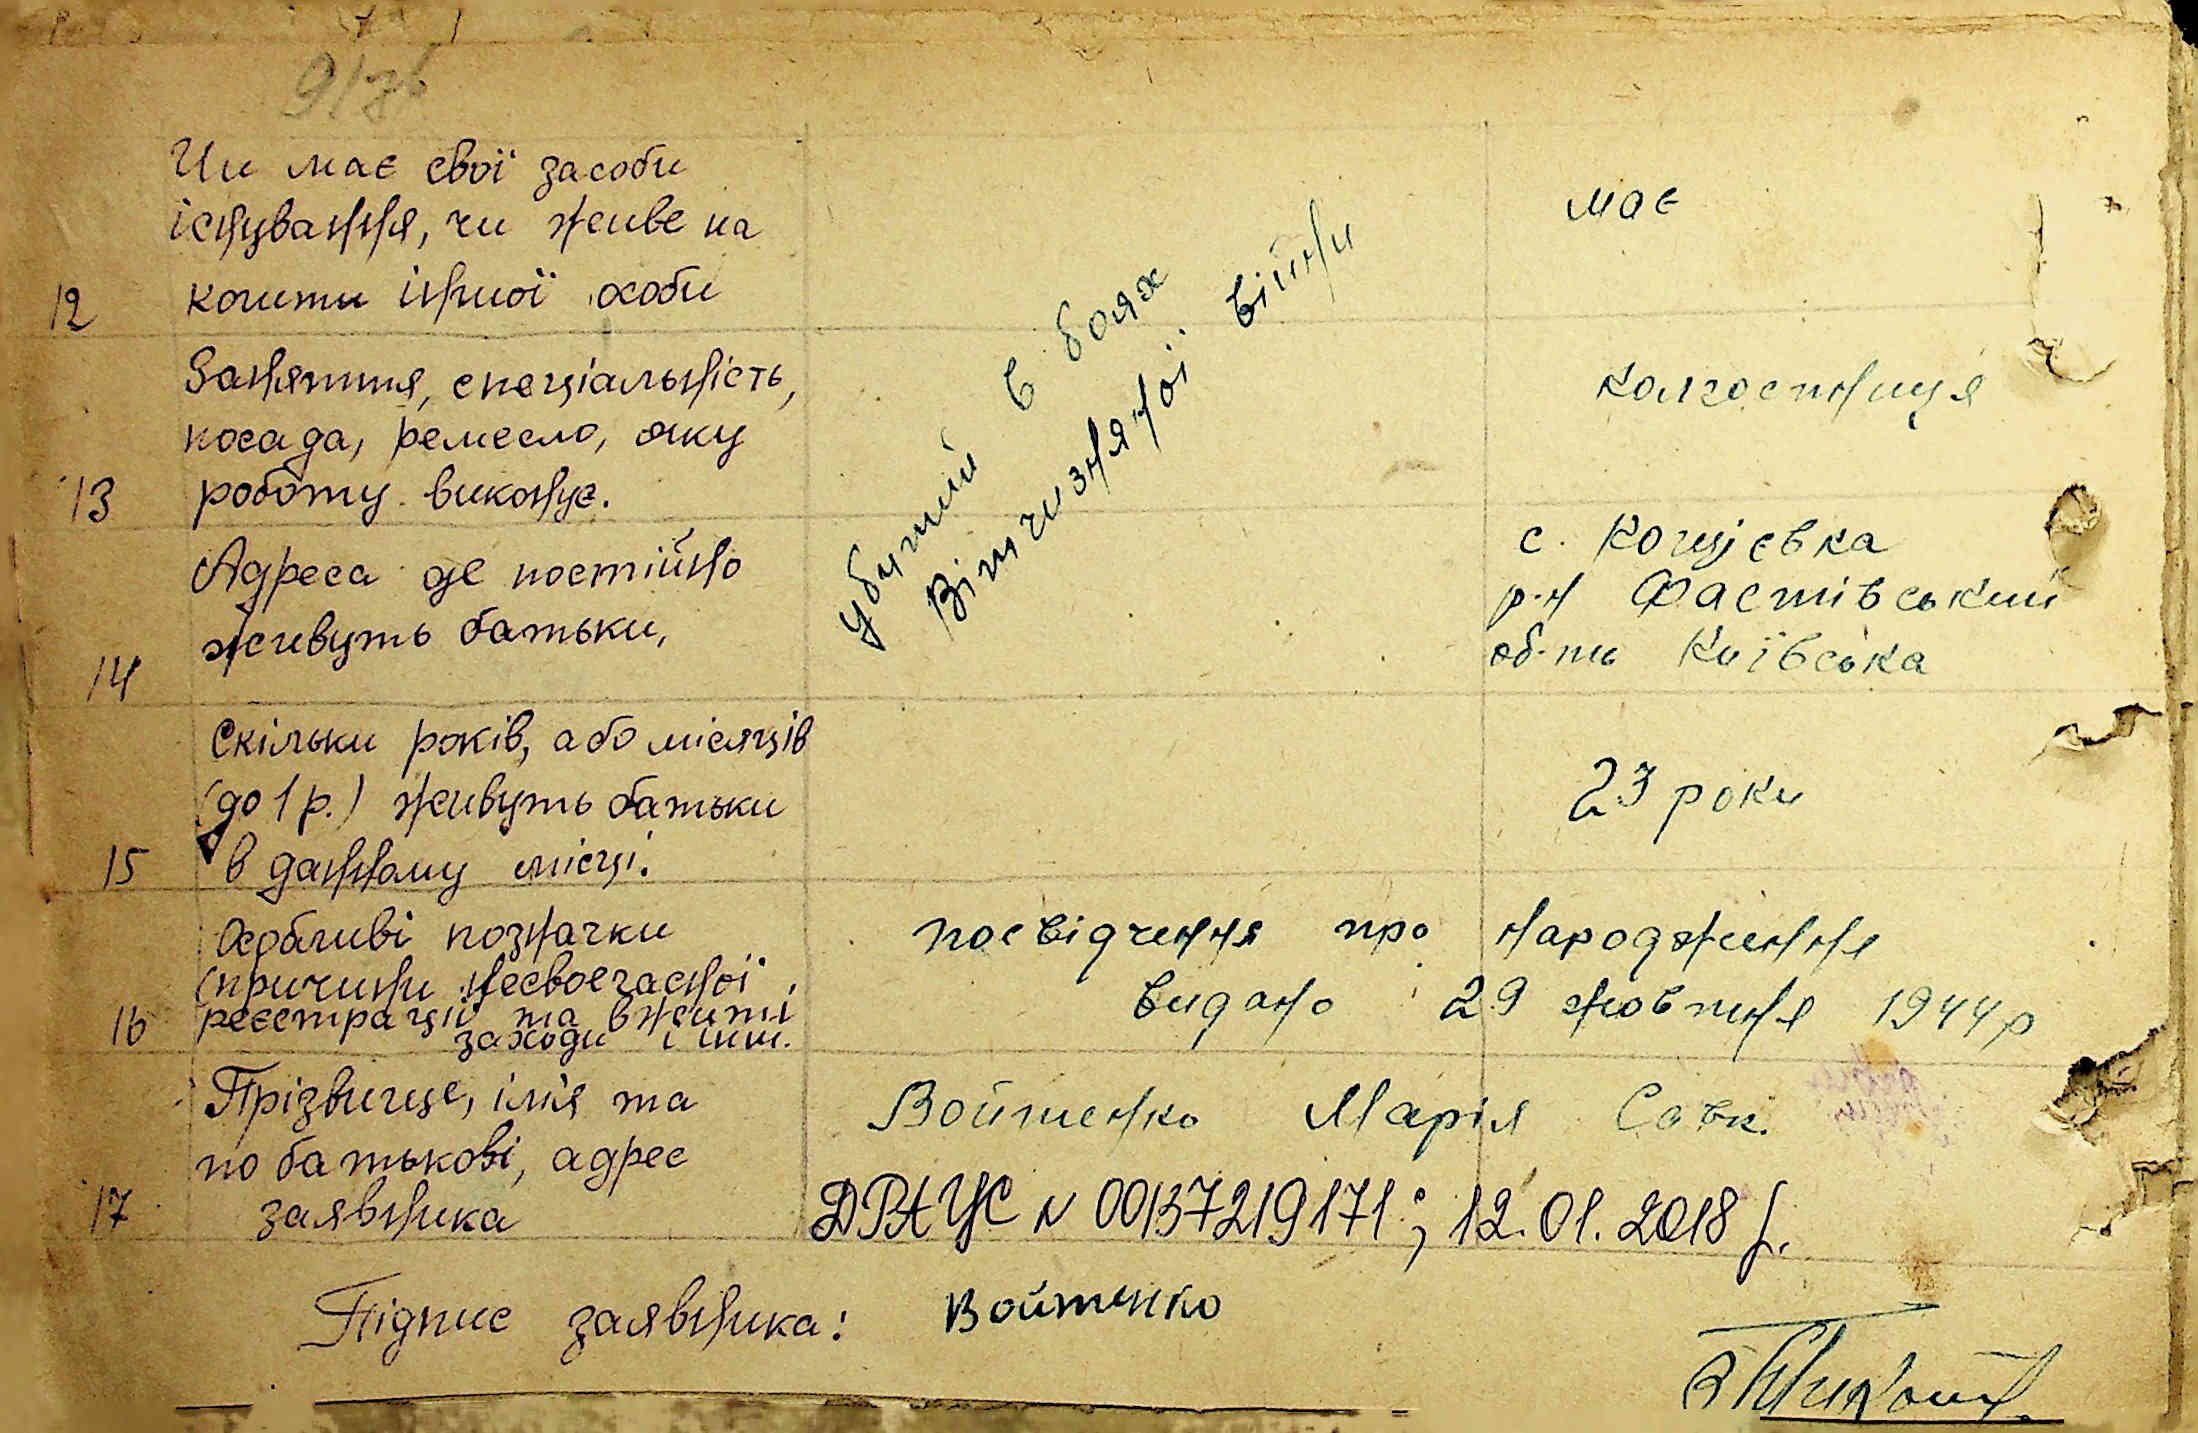 91зв
Чи має свої засоби
існування, чи живе на
12 кошти іншої особи
має
Заняття, спеціальність,
посада, ремесло, яку
13 роботу виконує.
колгоспниця
убитий в боях
Вітчизняної війни
Адреса де постійно
14 живуть батьки,
с. Кощієвка
р-н Фастівський
об-ть Київська
Скільки років, або місяців
(до 1 р.) живуть батьки
15 в данному місці.
23 роки
Особливі позначки
(причини несвоєчасної
16 реєстрації та вжиті
заходи і інш.
посвідчення про народження
видано 29 жовтня 1944 р
Прізвище, імя та
по батькові, адрес
17 заявника
Войтенко Марія Савк.
ДРАЦС N 00137219171; 12.01.2018 р.
Підпис заявника: Войтенко